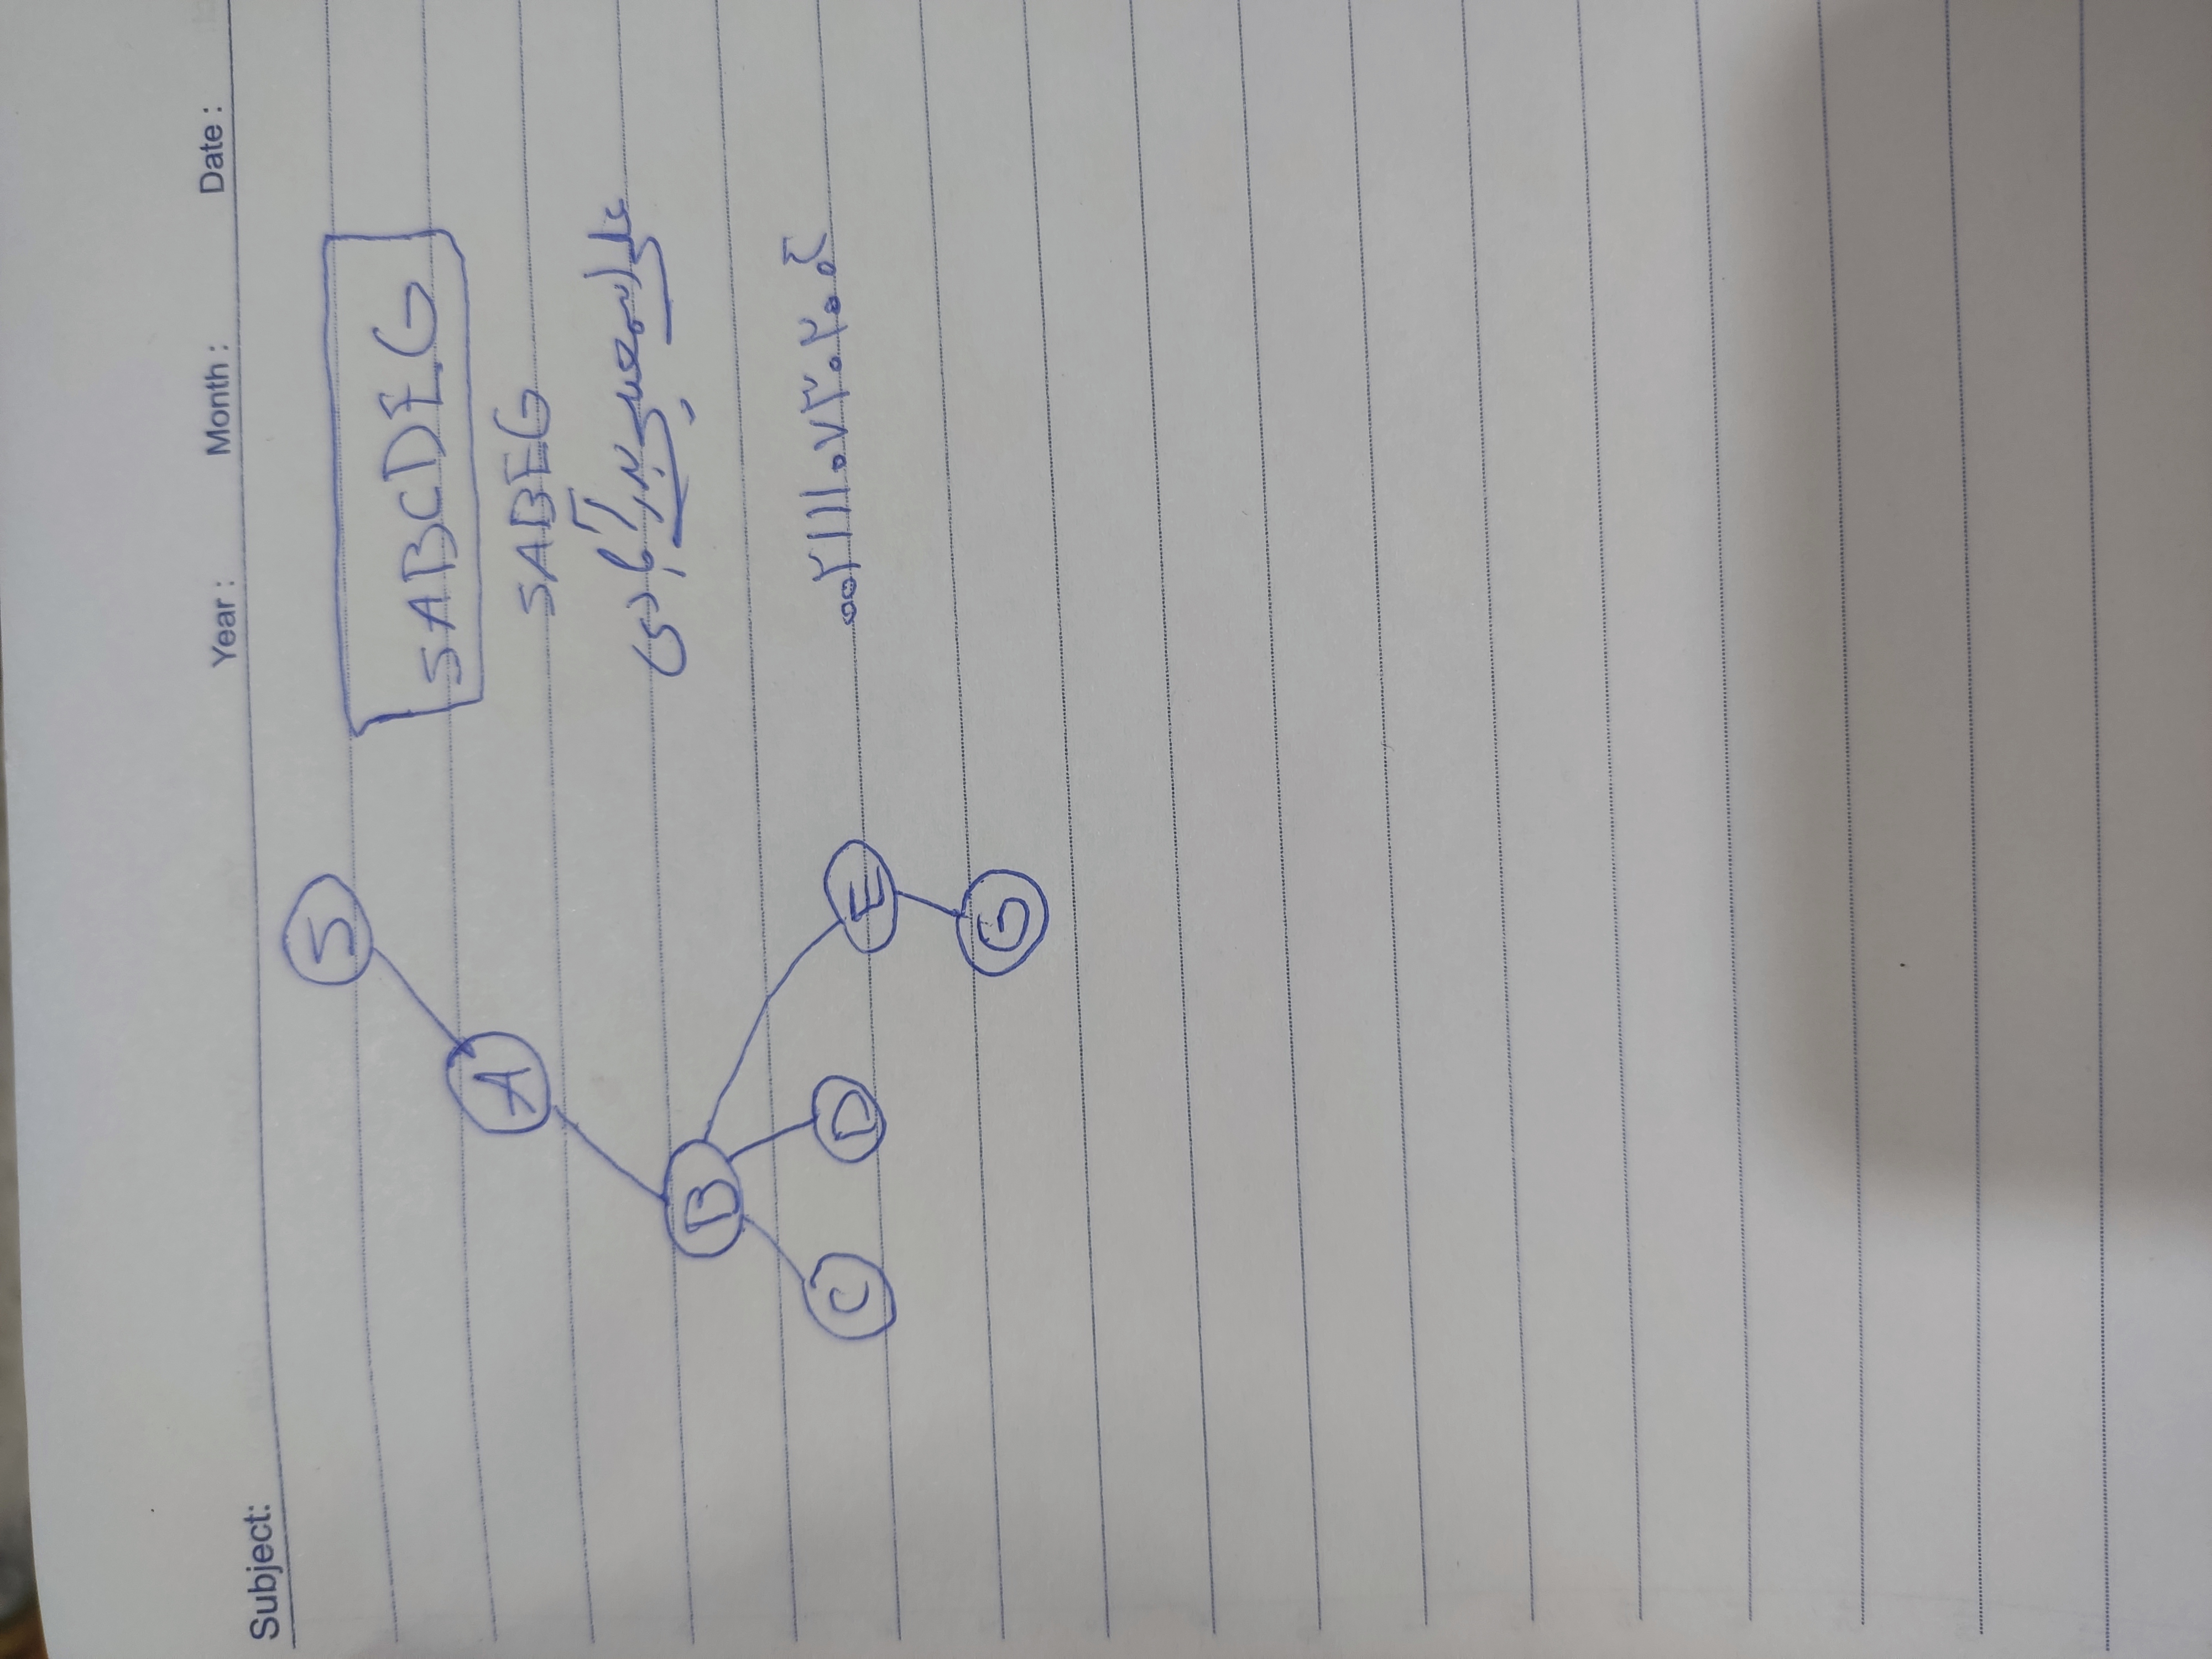 Subject:
Year :
Month :
Date :
S
A
B
C
D
E
G
SABCDEG
SABEG
علی اسمعیلی بدرآبادی
۰۰۲۱۱۱۰۷۳۰۲۰۰۶